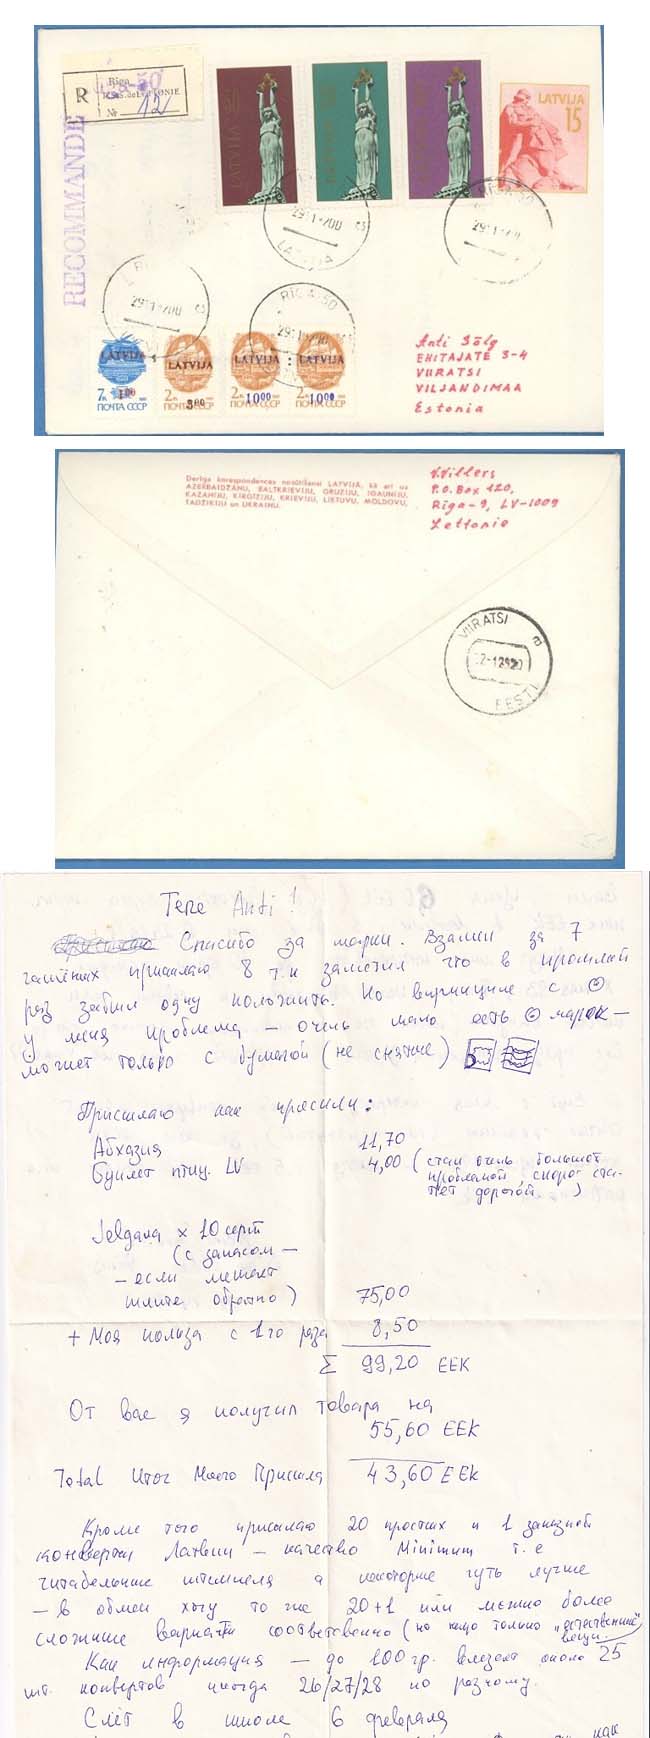 Riga
R
№ 12
RECOMMANDE
LATVIJA
LATVIJA
LATVIJA
LATVIJA
15
RIGA-50
LATVIJA
RIGA-50
RIGA-50
LATVIJA
LATVIJA
LATVIJA
LATVIJA
7к 1 00
ПОЧТА СССР
2к 3 00
ПОЧТА СССР
2к 10 00
ПОЧТА СССР
2к 10 00
ПОЧТА СССР
Anti Sälg
EHITAJATE 3-4
VIIRATSI
VILJANDIMAA
Estonia
Derīga korespondences nosūtīšanai LATVIJĀ, kā arī uz
AZERBAIDŽĀNU, BALTKRIEVIJU, GRUZIJU, IGAUNIJU,
KAZAHIJU, KIRGĪZIJU, KRIEVIJU, LIETUVU, MOLDOVU,
TADŽIKIJU un UKRAINU.
V. Villers
P.O. Box 120,
Rīga-9, LV-1009
Lettonie
VIIRATSI
a
EESTI
Tere Anti!
Спасибо за марки. Взамен за 7
гашёных присылаю 8 т.к заметил что в прошлый
раз забыл одну положить. Но
у меня проблема – очень мало есть марок –
может только с бумагой (не снятые)
Присылаю как просили:
Абхазия 11,70
Буклет птиц. LV 4,00 (стал очень большой
проблемой, скоро ста-
нет дорогой.)
Jelgava x 10 серий
(с запасом –
– если мешает
шлите обратно) 75,00
+ Моя польза с 1го раза 8,50
Σ 99,20 EEK
От вас я получил товара на
55,60 EEK
Total Итог Моего Присыла 43,60 EEK
Кроме того присылаю 20 простых и 1 заказной
конверты Латвии – качество Minimum т.е
читабельные штемпеля а некоторые чуть лучше
– в обмен хочу то же 20+1 или можно более
сложные варианты соответственно (но надо только „естественные"
вещи.
Как информация – до 100 гр. влезает около 25
шт. конвертов иногда 26/27/28 по разному.
Слёт в школе 6 февраля